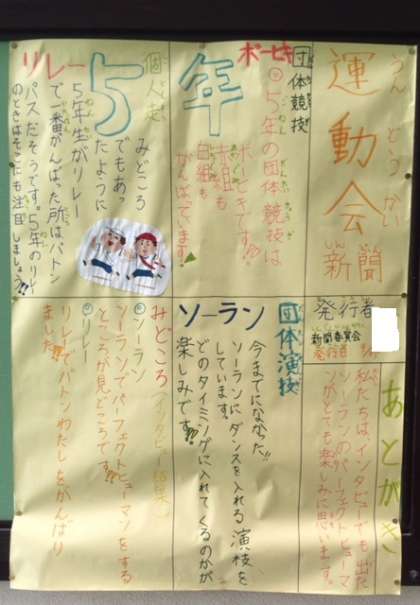 運動会
うんどうかい
新聞
しんぶん
発行者
新聞委員会
発行日
団体競技
ボーヒキ
5年の団体競技は
ボーヒキです!!
赤組も
白組も
がんばっています!
5年
個人走
リレー
みどころ
でもあっ
たように
5年生がリレー
で一番がんばった所はバトン
パスだそうです。5年のリレー
のときはそこにも注目しましょう!!
団体演技
ソーラン
今までになかった!!
ソーランにダンスを入れる演技を
しています。
どのタイミングに入れてくるのかが
楽しみです!!
みどころ(インタビュー結果)
ソーラン
ソーランでパーフェクトヒューマンをする
ところが見どころです!!
リレー
リレーでバトンわたしをがんばり
ました!!
あとがき
私たちは、インタビューでも出た
ソーランのパーフェクトヒューマ
ンがとても楽しみに思います。